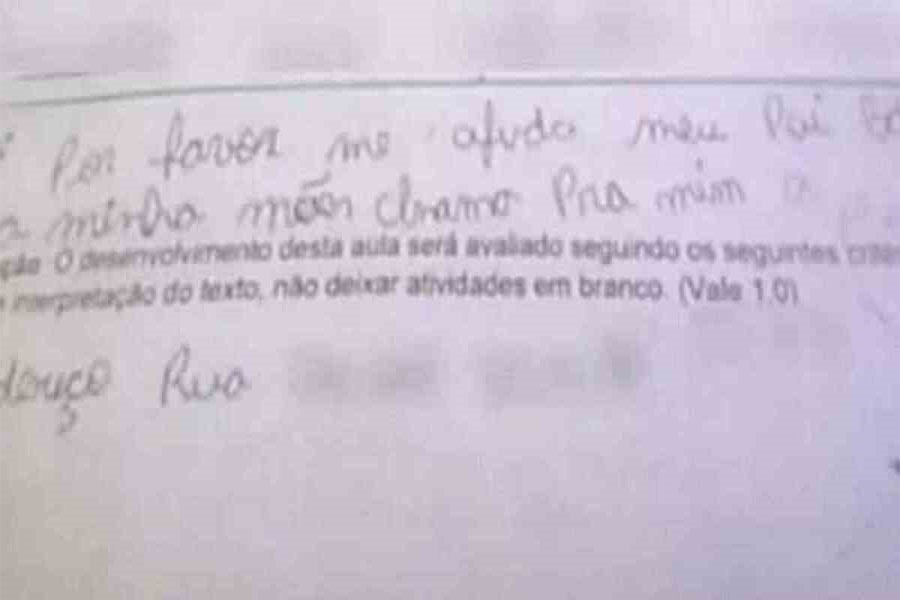 Por favor me ajuda meu Pai
minha mãen chama Pra mim a
O desenvolvimento desta aula será avaliado seguindo os seguintes
interpretação do texto, não deixar atividades em branco. (Vale 1,0)
Rua